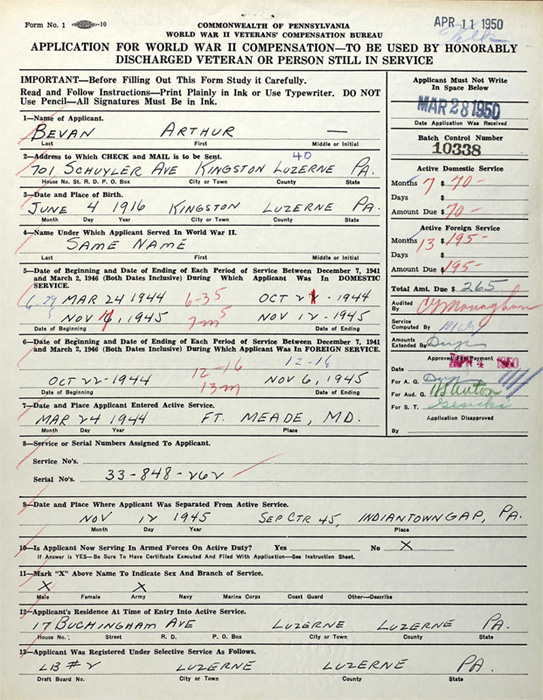 Form No. 1 10
COMMONWEALTH OF PENNSYLVANIA
WORLD WAR II VETERANS' COMPENSATION BUREAU
APR 11 1950
APPLICATION FOR WORLD WAR II COMPENSATION—TO BE USED BY HONORABLY
DISCHARGED VETERAN OR PERSON STILL IN SERVICE
IMPORTANT—Before Filling Out This Form Study it Carefully.
Read and Follow Instructions—Print Plainly in Ink or Use Typewriter. DO NOT
Use Pencil—All Signatures Must Be in Ink.
1—Name of Applicant.
BEVAN ARTHUR —
Last First Middle or Initial
2—Address to Which CHECK and MAIL is to be Sent.
40
701 SCHUYLER AVE KINGSTON LUZERNE PA.
House No. St. R. D. P. O. Box City or Town County State
3—Date and Place of Birth.
JUNE 4 1916 KINGSTON LUZERNE PA.
Month Day Year City or Town County State
4—Name Under Which Applicant Served In World War II.
SAME NAME
Last First Middle or Initial
5—Date of Beginning and Date of Ending of Each Period of Service Between December 7, 1941
and March 2, 1946 (Both Dates Inclusive) During Which Applicant Was In DOMESTIC
SERVICE.
MAR 24 1944 6-35 OCT 21 - 1944
NOV 1945 7m5 NOV 12 - 1945
Date of Beginning Date of Ending
6—Date of Beginning and Date of Ending of Each Period of Service Between December 7, 1941
and March 2, 1946 (Both Dates Inclusive) During Which Applicant Was in FOREIGN SERVICE.
12-16 12-16
OCT 22 - 1944 13m NOV 6, 1945
Date of Beginning Date of Ending
7—Date and Place Applicant Entered Active Service.
MAR 24 1944 FT. MEADE, MD.
Month Day Year Place
8—Service or Serial Numbers Assigned To Applicant.
Service No's.
Serial No's. 33-848-262
9—Date and Place Where Applicant Was Separated From Active Service.
NOV 12 1945 SEP CTR 45, INDIANTOWN GAP, PA.
Month Day Year Place
10—Is Applicant Now Serving In Armed Forces On Active Duty? Yes No X
If Answer is YES—Be Sure To Have Certificate Executed And Filed With Application—See Instruction Sheet.
11—Mark "X" Above Name To Indicate Sex and Branch of Service.
X X
Male Female Army Navy Marine Corps Coast Guard Other—Describe
12—Applicant's Residence At Time of Entry Into Active Service.
17 BUCHINGHAM AVE LUZERNE LUZERNE PA.
House No. Street R. D. P. O. Box City or Town County State
13—Applicant Was Registered Under Selective Service As Follows.
LB #2 LUZERNE LUZERNE PA.
Draft Board No. City or Town County State
Applicant Must Not Write
In Space Below
MAR 28 1950
Date Application Was Received
Batch Control Number
10338
Active Domestic Service
Months 7 $ 70-
Days
Amount Due $ 70-
Active Foreign Service
Months 13 $ 195-
Days
Amount Due $ 195-
Total Amt. Due $ 265
Audited By
Service
Computed By
Amounts
Extended By
Approved For Payment
Date APR 4 1950
For A. G.
For Aud. G.
For S. T.
Application Disapproved
By